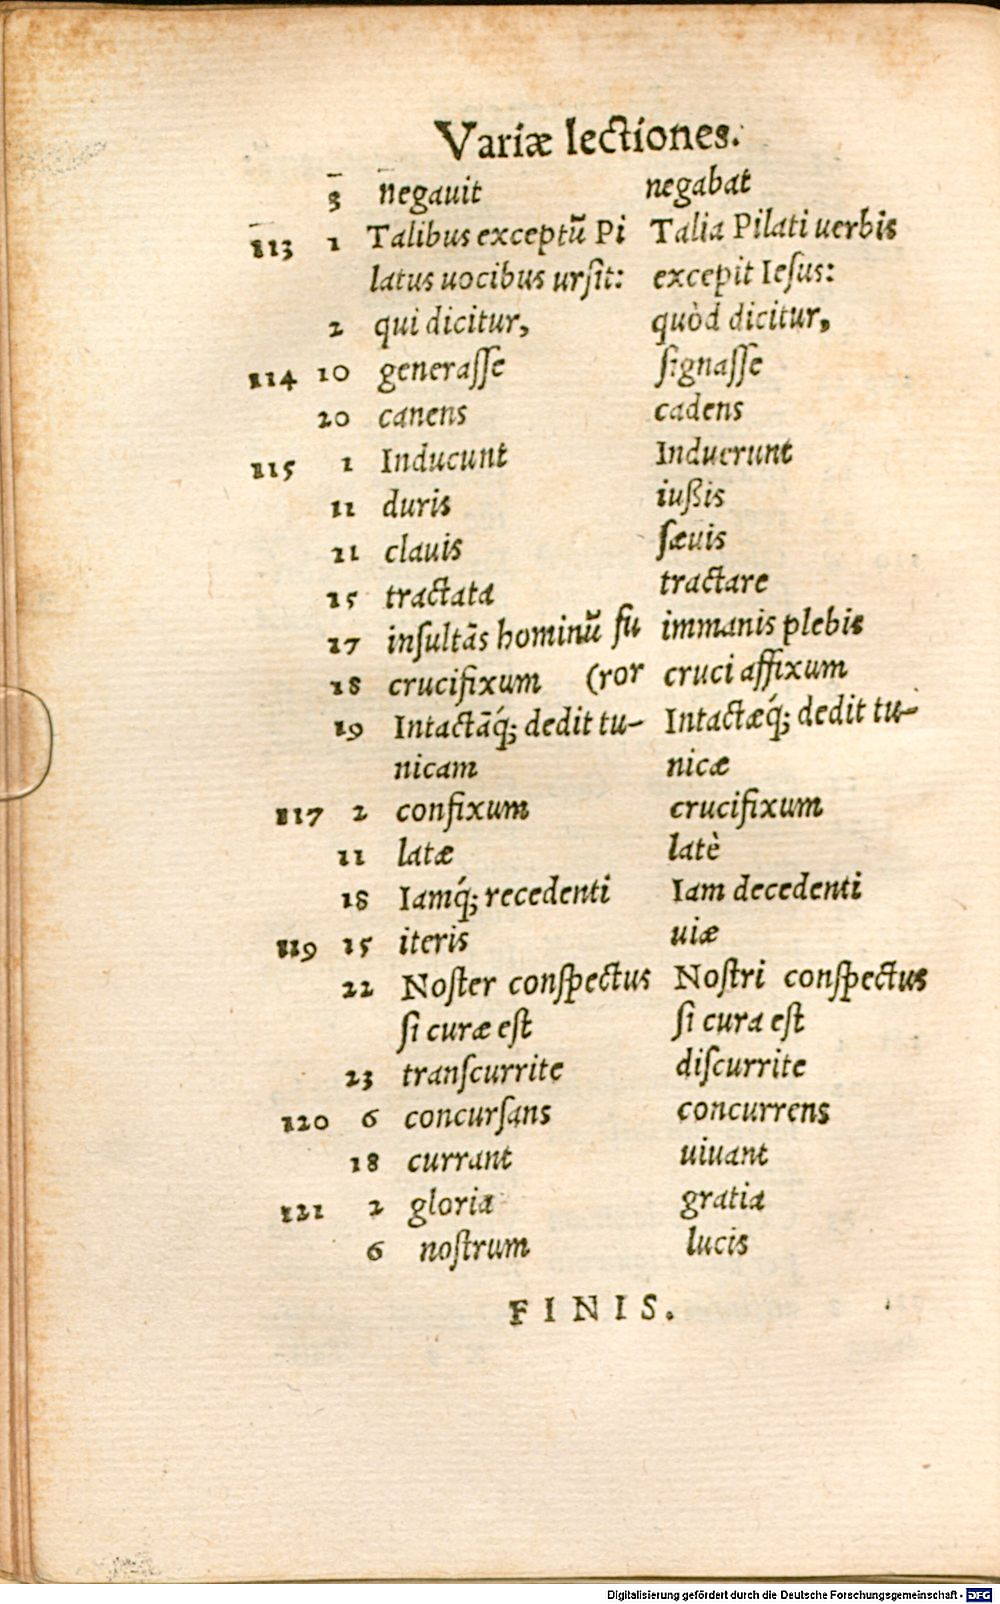 Variæ lectiones.
3 negauit negabat
113 1 Talibus exceptũ Pi Talia Pilati uerbis
latus uocibus urſit: excepit Ieſus:
2 qui dicitur, quòd dicitur,
114 10 generaſſe ſignaſſe
20 canens cadens
115 1 Inducunt Induerunt
11 duris iußis
11 clauis ſæuis
15 tractata tractare
17 inſultãs hominũ fu immanis plebis
18 crucifixum (ror cruci affixum
19 Intactãq́; dedit tu- Intactæq́; dedit tu-
nicam nicæ
117 2 confixum crucifixum
11 latæ latè
18 Iamq́; recedenti Iam decedenti
119 15 iteris uiæ
22 Noſter conſpectus Noſtri conſpectus
ſi curæ eſt ſi cura eſt
23 tranſcurrite diſcurrite
120 6 concurſans concurrens
18 currant uiuant
121 2 gloria gratia
6 noſtrum lucis
FINIS.
Digitalisierung gefördert durch die Deutsche Forschungsgemeinschaft - DFG